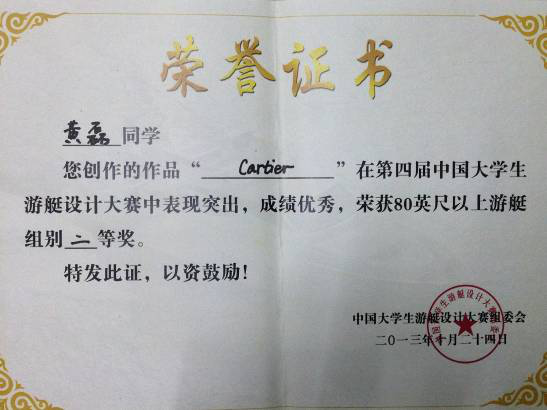 荣誉证书
黄磊同学
您创作的作品“Cartier”在第四届中国大学生
游艇设计大赛中表现突出，成绩优秀，荣获80英尺以上游艇
组别二等奖。
特发此证，以资鼓励！
中国大学生游艇设计大赛组委会
二〇一三年十月二十四日